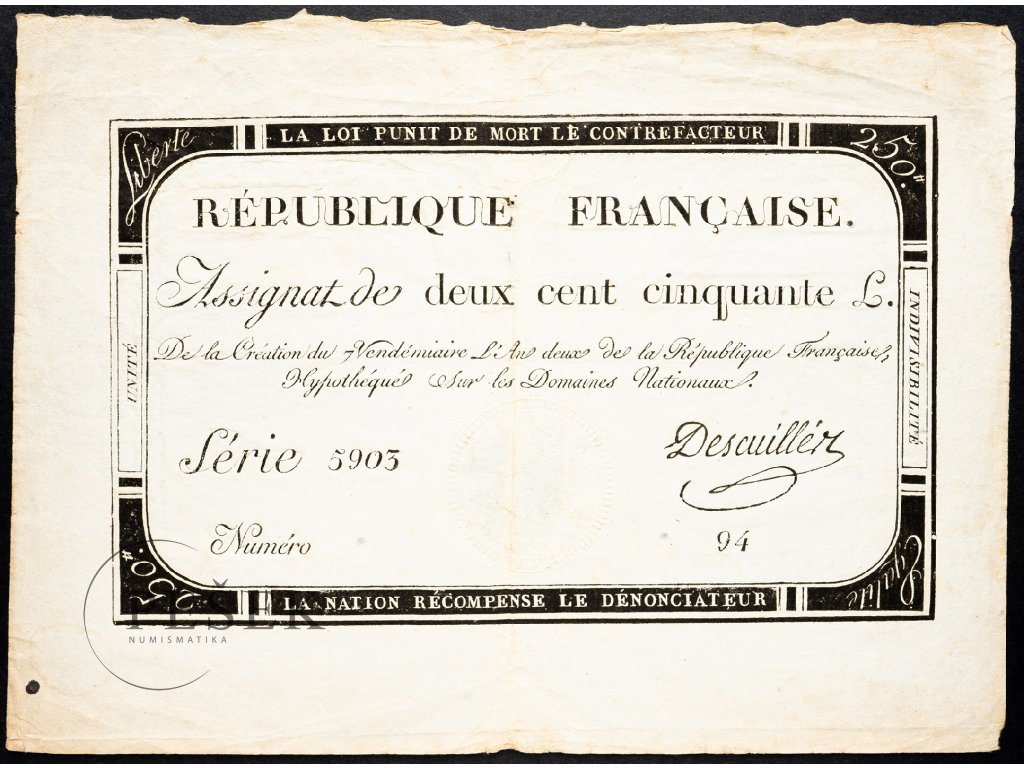 Liberte
LA LOI PUNIT DE MORT LE CONTREFACTEUR
250.tt
RÉPUBLIQUE FRANÇAISE.
Assignat de deux cent cinquante L.
De la Création du 7 Vendémiaire L'An deux de la République Française,
Hypothéqué Sur les Domaines Nationaux.
UNITÉ
INDIVISIBILITÉ
Série 5903
Descuilléz
Numéro
94
250.tt
LA NATION RÉCOMPENSE LE DÉNONCIATEUR
Egalité
PEŠEK
NUMISMATIKA